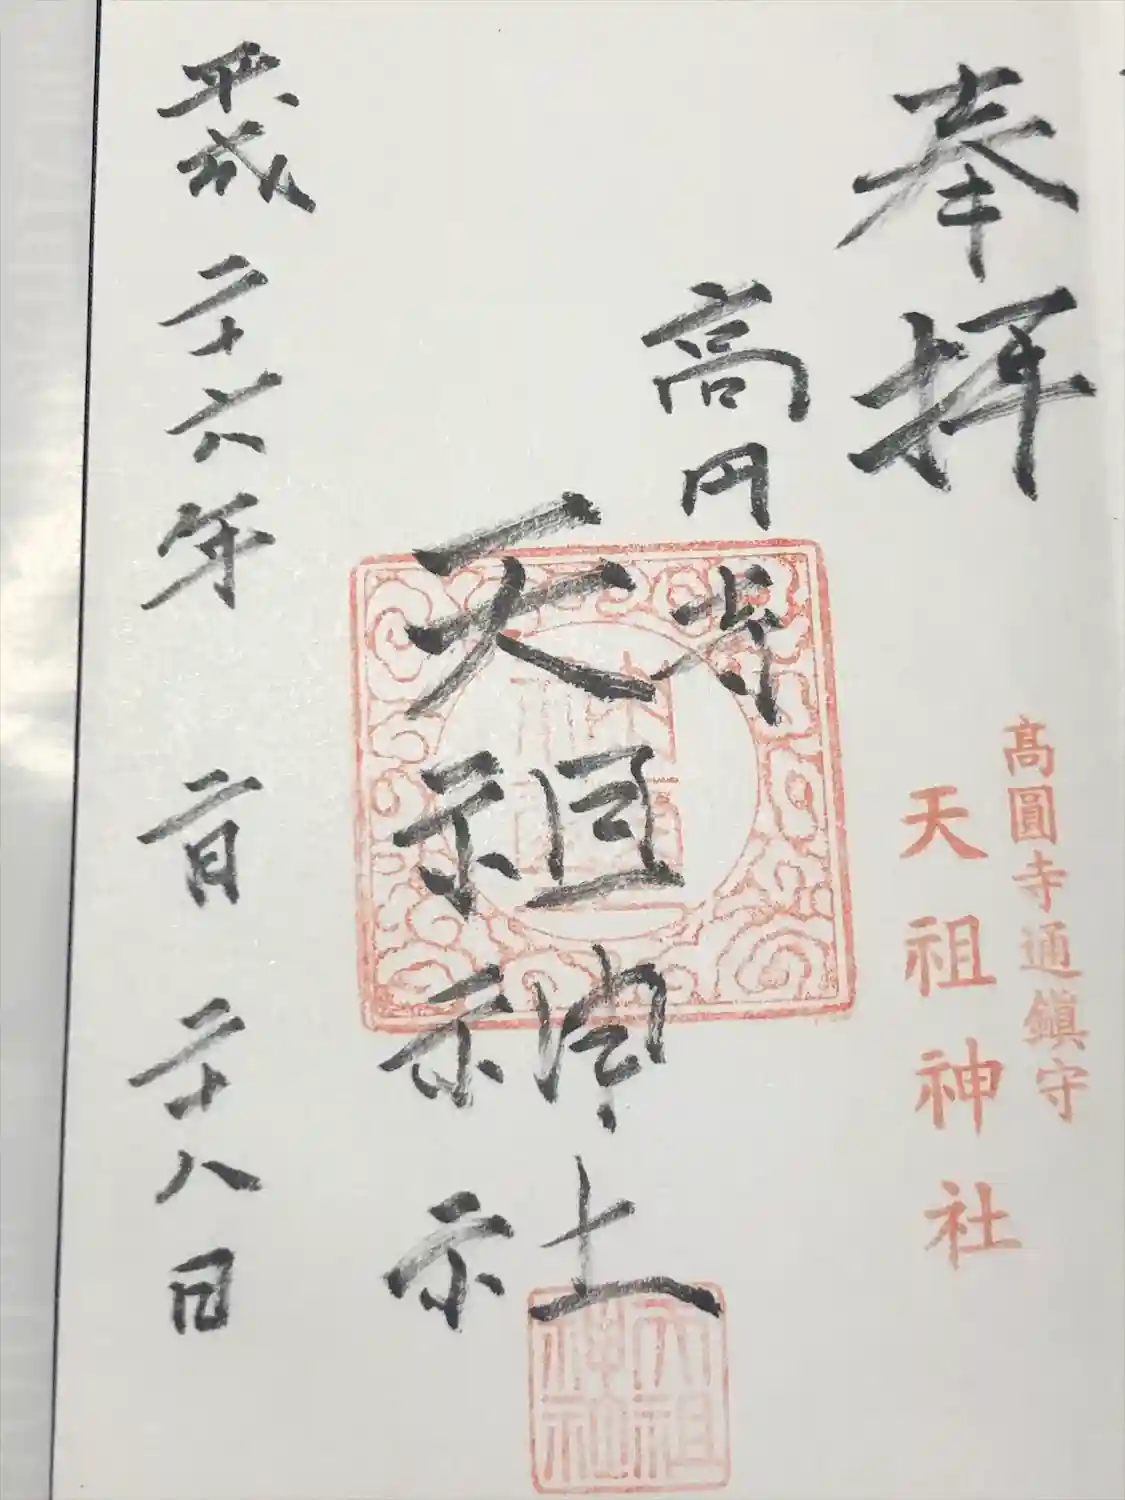 奉拝
髙圓寺通鎮守
天祖神社
高円寺
天祖神社
天祖
神社
平成二十六年二月二十八日